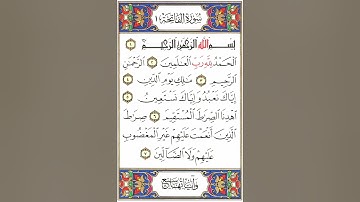 سُورَةُ الفَاتِحَة ١
بِسْمِ اللَّهِ الرَّحْمَٰنِ الرَّحِيمِ ١
الْحَمْدُ لِلَّهِ رَبِّ الْعَالَمِينَ ٢ الرَّحْمَٰنِ
الرَّحِيمِ ٣ مَالِكِ يَوْمِ الدِّينِ ٤
إِيَّاكَ نَعْبُدُ وَإِيَّاكَ نَسْتَعِينُ ٥
اهْدِنَا الصِّرَاطَ الْمُسْتَقِيمَ ٦ صِرَاطَ
الَّذِينَ أَنْعَمْتَ عَلَيْهِمْ غَيْرِ الْمَغْضُوبِ
عَلَيْهِمْ وَلَا الضَّالِّينَ ٧